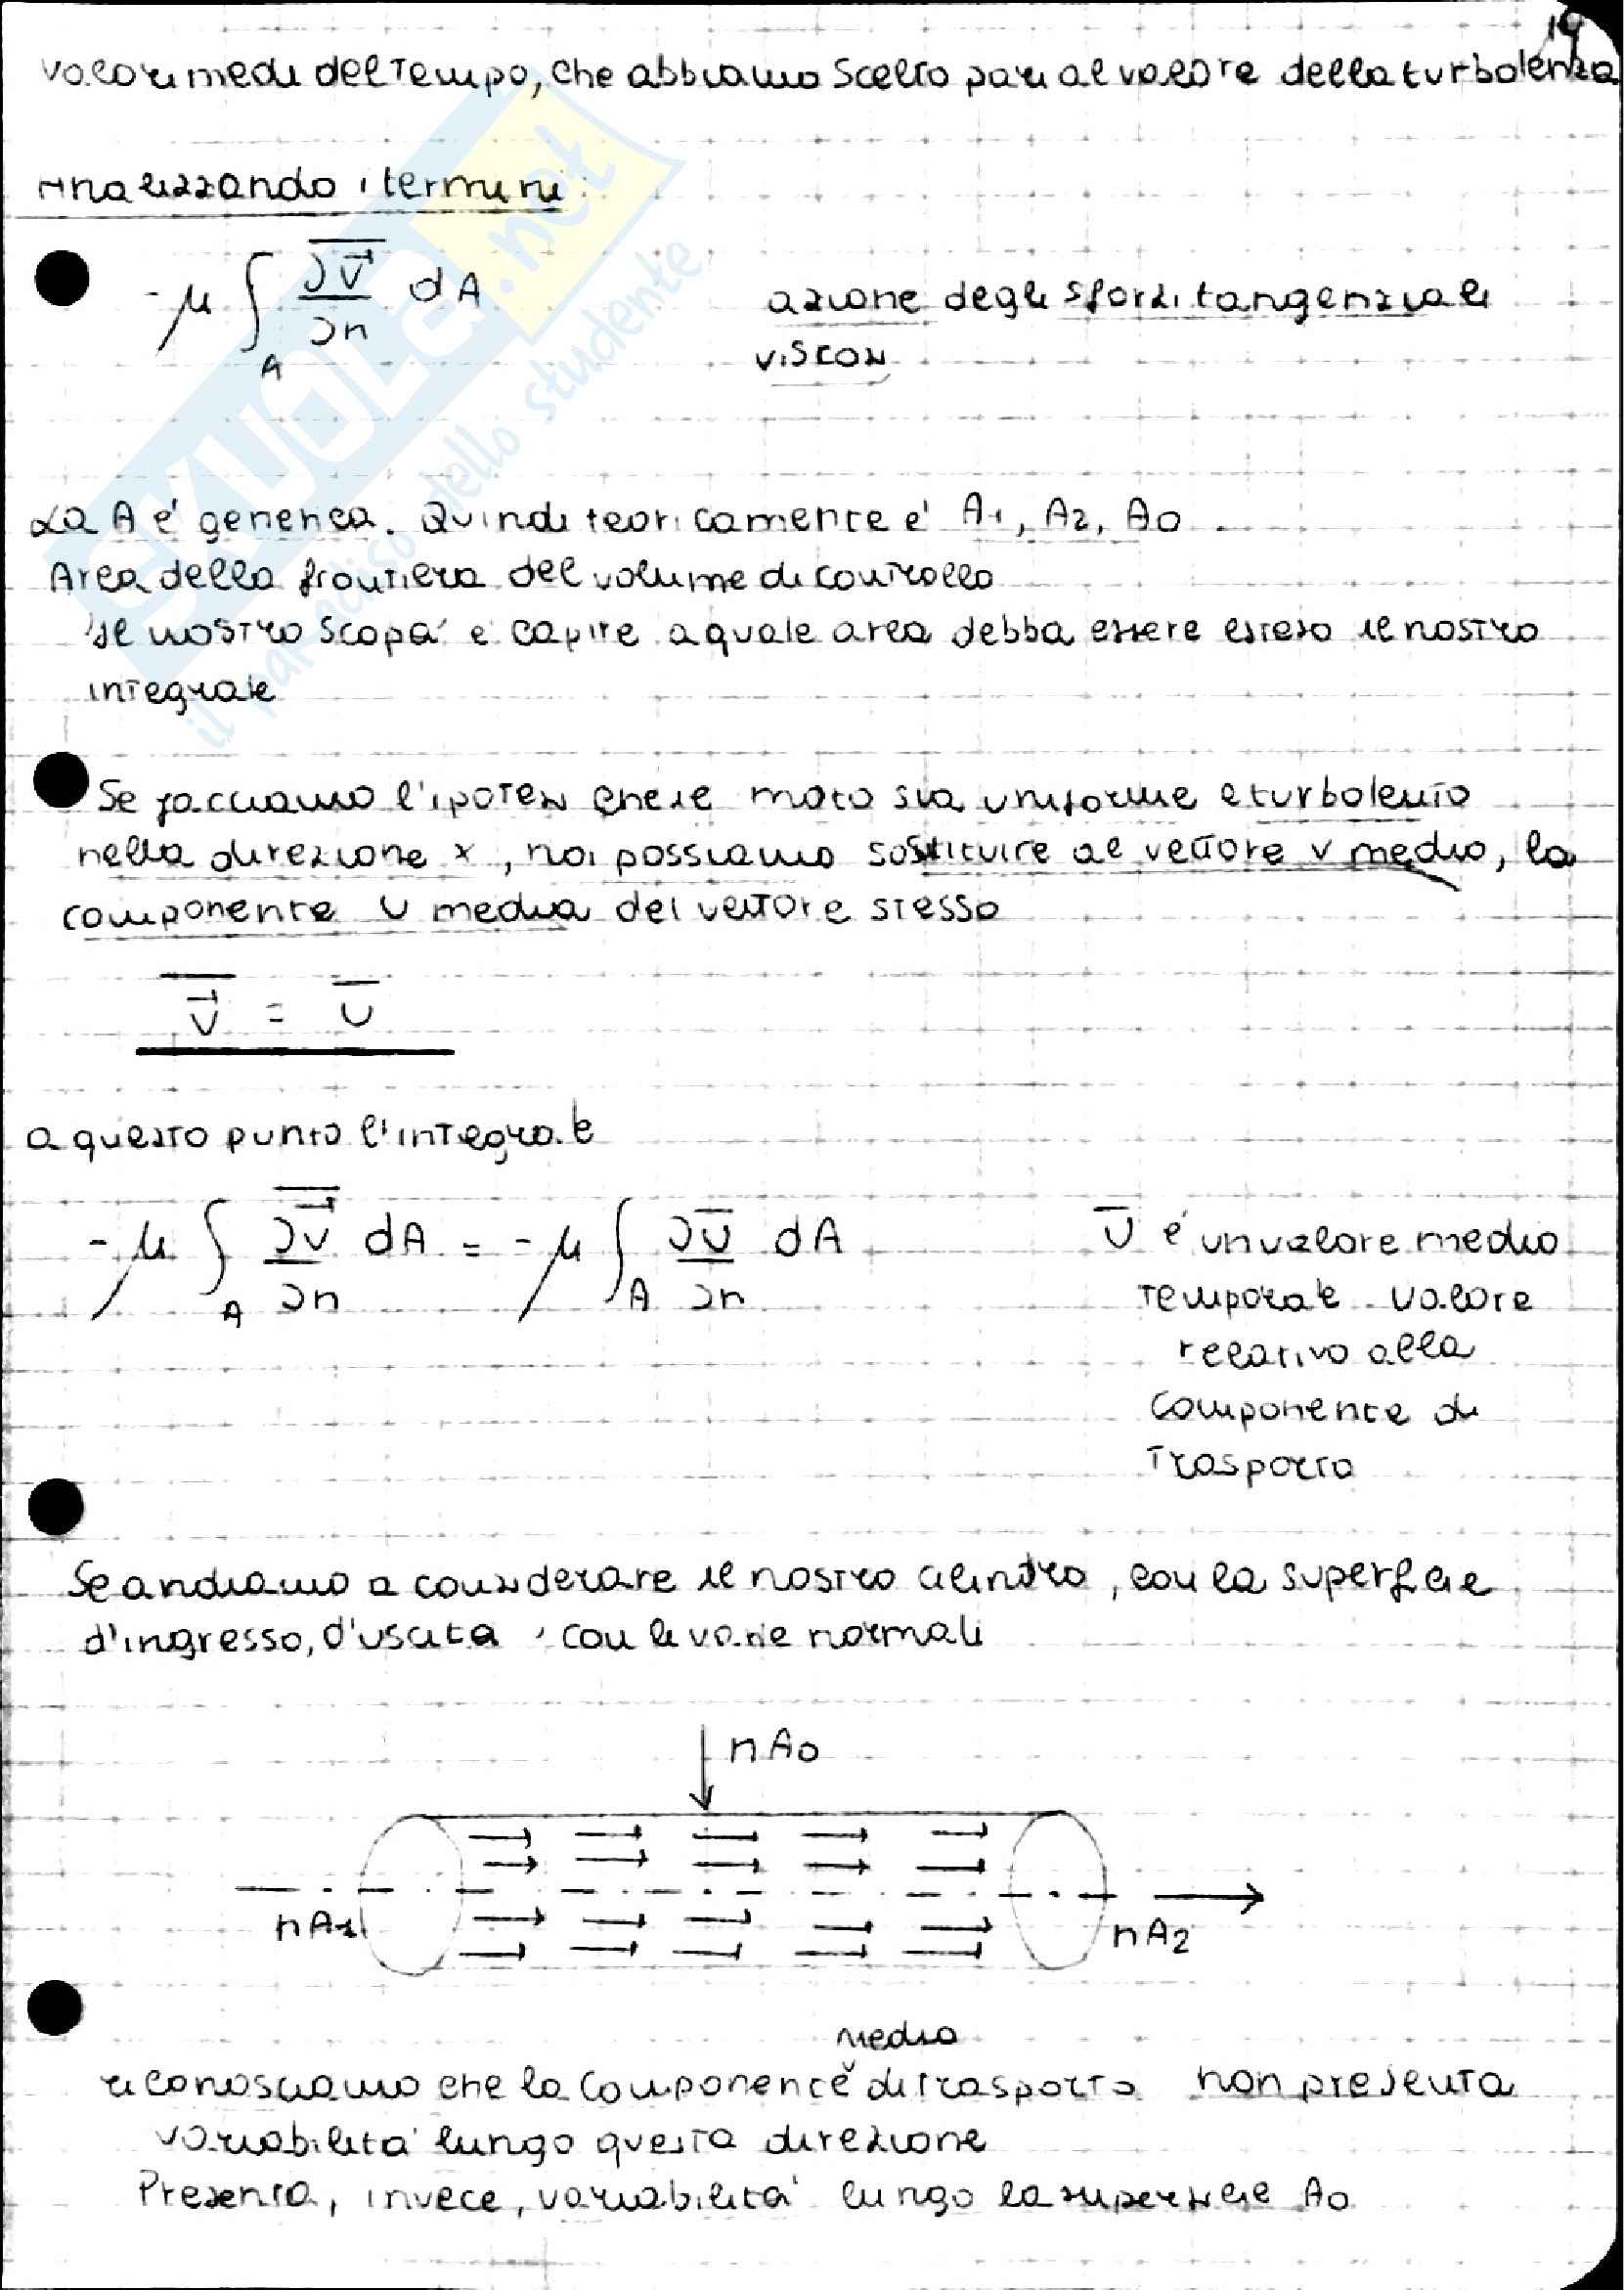 19
valori medi del tempo, che abbiamo scelto pari al valore della turbolenza
Analizzando i termini:
-μ ∫_A ∂v⃗/∂n dA
azione degli sforzi tangenziali
viscosi
La A e' generica. Quindi teoricamente e' A1, A2, A0.
Area della frontiera del volume di controllo
Il nostro scopo e' capire a quale area debba essere esteso il nostro
integrale
Se facciamo l'ipotesi che il moto sia uniforme e turbolento
nella direzione x, noi possiamo sostituire al vettore v medio, la
componente U media del vettore stesso
v⃗̅ = U̅
a questo punto l'integrale
-μ ∫_A ∂v⃗̅/∂n dA = -μ ∫_A ∂U̅/∂n dA
U̅ e' un valore medio
temporale valore
relativo alla
componente di
trasporto
Se andiamo a considerare il nostro cilindro, con la superficie
d'ingresso, d'uscita, con le varie normali
nA0
nA1
nA2
medio
riconosciamo che la componente di trasporto non presenta
variabilita' lungo questa direzione
Presenta, invece, variabilita' lungo la superficie A0
SKUOLA.net
il paradiso dello studente